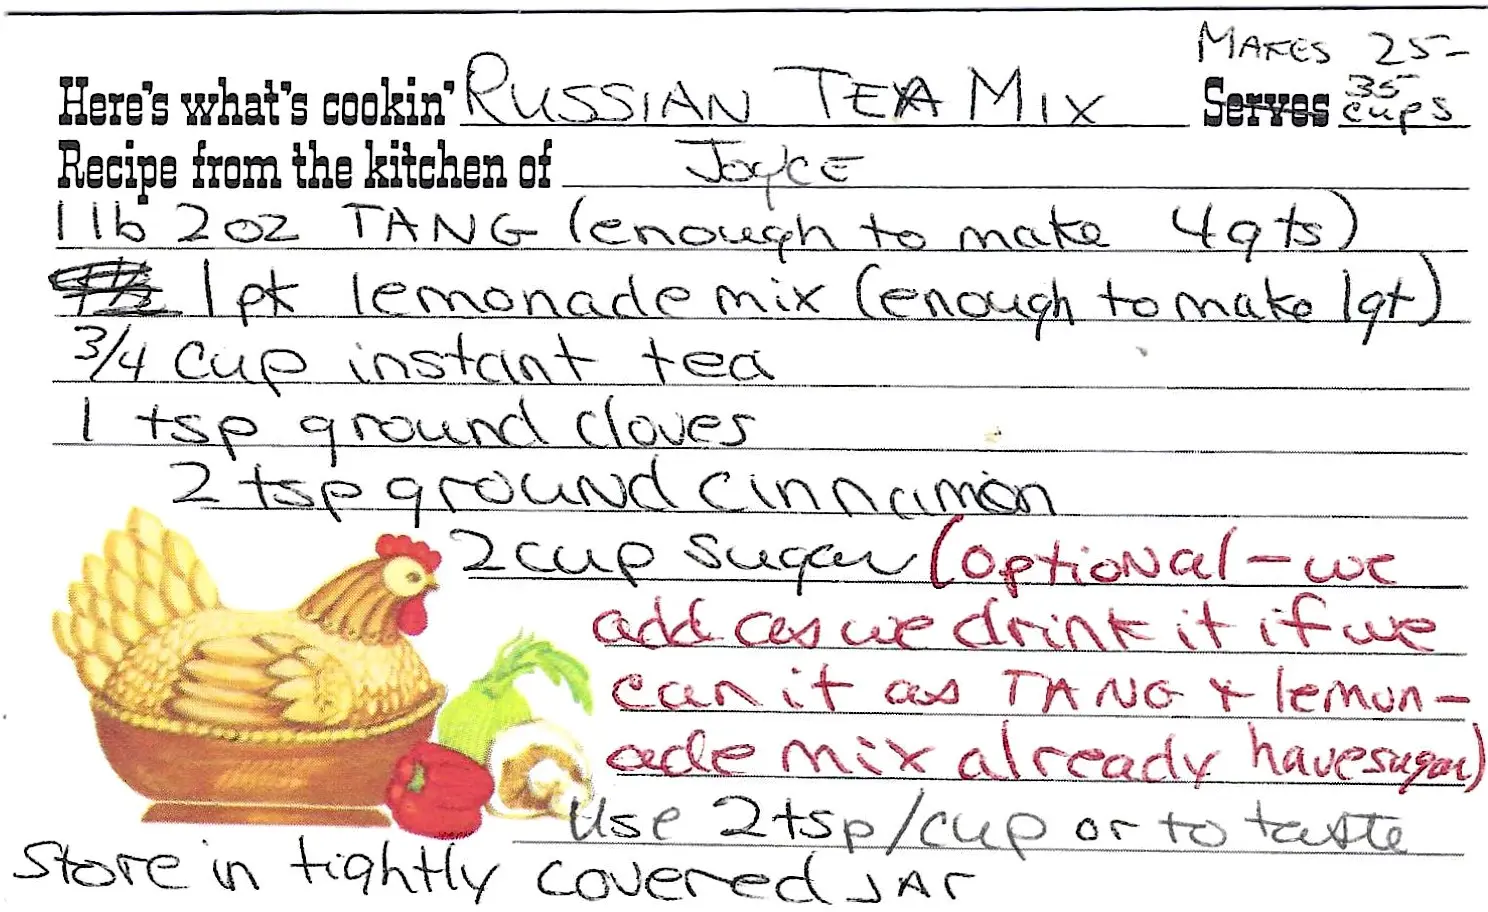 MAKES 25-
Here's what's cookin' RUSSIAN TEA MIX Serves 35 cups
Recipe from the kitchen of JOYCE
1 lb 2 oz TANG (enough to make 4 qts)
1 pk lemonade mix (enough to make 1 qt)
3/4 cup instant tea
1 tsp ground cloves
2 tsp ground cinnamon
2 cup sugar (optional - we
add as we drink it if we
can it as TANG + lemon-
ade mix already have sugar)
Use 2 tsp/cup or to taste
Store in tightly covered JAr